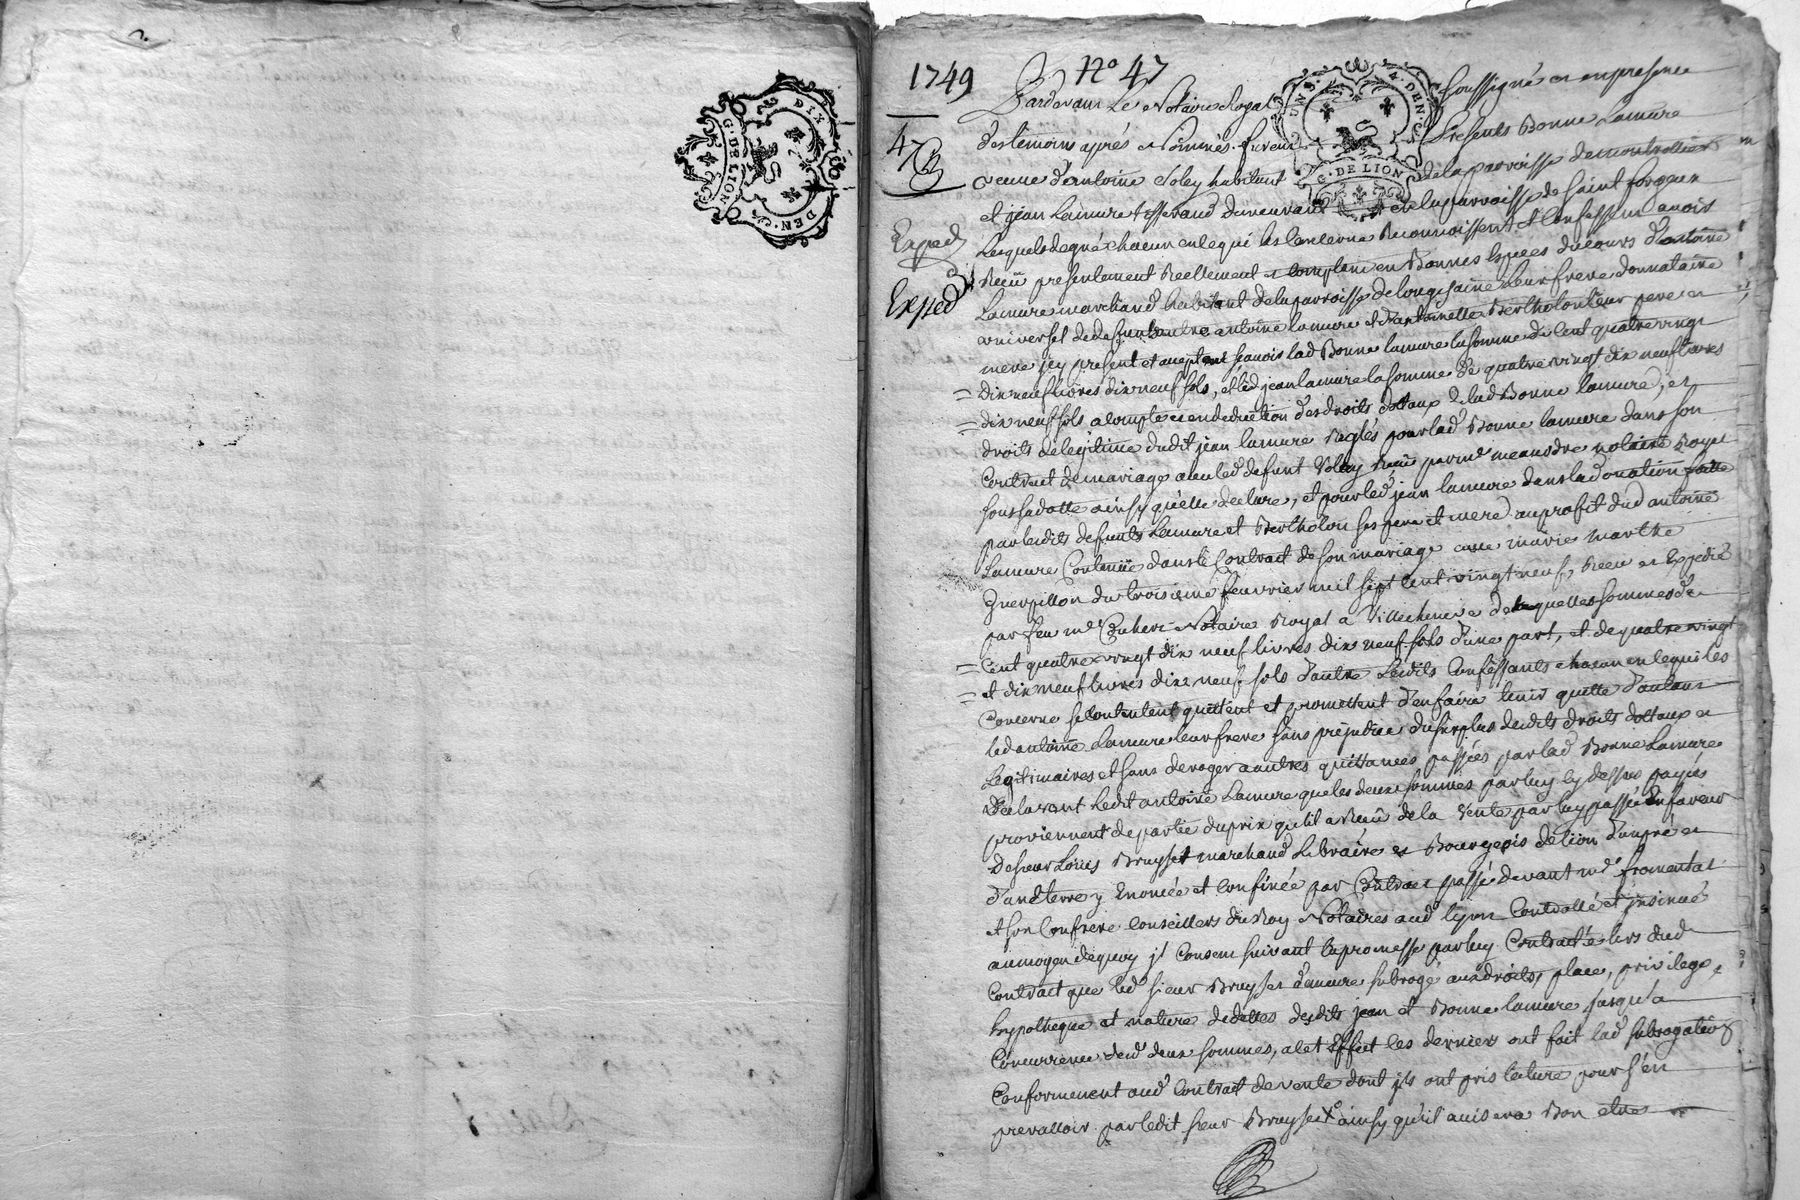 DIX DEN.
G. DE LION
1749
N° 47
47
Exped
Exped
UN S. 4. DEN.
G. DE LION
Pardevant Le Notaire Royal soussigné et en presence
des temoins aprés Nommés furent presents Bonne Lamure
veuve d'antoine Voley habitant de la parroisse de montrottier
et jean Lamure tisserand demeurant en la parroisse de saint forgeux
Lesquels de gré chacun en le qui les Concerne Reconnoissent et Confessent avoir
Reçu presentement Reellement et Comptant en Bonnes Espees du cours d'antoine
Lamure marchand habitant de la parroisse de longesaine leur frere donnataire
universel de deffunts antoine lamure et d'antoinette Bertholon leur pere et
mere jcy present et acceptant sçavoir lad Bonne lamure la somme de Cent quatre vingt
= dix neuf livres dix neuf sols, et led jean lamure la somme de quatre vingt dix neuf livres
= dix neuf sols a compte et en deduction des droits dottaux de lad Bonne lamure, et
droits de legitime dudit jean lamure Reglés pour lad Bonne lamure dans son
Contract de mariage avec led defunt Voley Reçu par me meandre notaire Royal
sous sa datte ainsy qu'elle declare, et pour led jean lamure dans la donation faitte
par lesdits defunts Lamure et Bertholon ses pere et mere au profit dud antoine
Lamure Contenüe dans le Contract de son mariage avec marie marthe
Guerpillon du troisieme feuvrier mil sept cent vingt neuf, Receu et Expedié
par feu me Cuherr Notaire Royal a Villecheneve desquelles sommes de
= Cent quatre vingt dix neuf livres dix neuf sols d'une part, et de quatre vingt
= et dix neuf livres dix neuf sols d'autre Lesdits Confessants chacun en le qui les
Concerne se contentent quittent et promettent d'en faire tenir quitte d'autant
led antoine Lamure leur frere sans prejudice du surplus desdits droits dottaux et
Legitimaires et sans deroger a autres quittances passées par lad Bonne Lamure
declarant Ledit antoine Lamure que les deux sommes par luy cy dessus payées
proviennent de partie du prix qu'il a Reçu de la Vente par luy passée En faveur
de sieur Louis Bruyset marchand Libraire et Bourgeois de lion d'un pré et
d'une terre y Enoncée et Confinée par Contract passé devant me fromental
et son Confrere Conseillers du Roy Notaires aud lyon Controllé et jnsinué
au moyen de quoy jl Consent suivant la promesse par luy Contractée lors dud
Contract que led sieur Bruyset demeure subrogé aux droits, place, privilege,
hypotheque et nature de dettes desdits jean et Bonne lamure jusqu'a
Concurrence desd deux sommes, a l'et Effect les derniers ont fait lad subrogation
Conformement aud Contract de vente dont jls ont pris lecture pour s'en
prevalloir par ledit sieur Bruyset ainsy qu'il avisera Bon etre